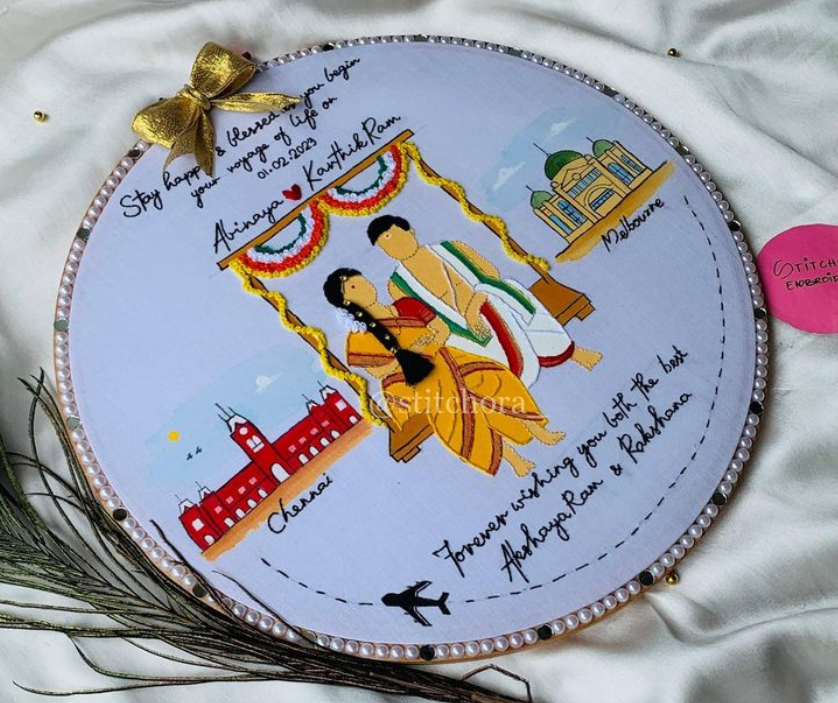 Stay happy & blessed as you begin
your voyage of life on
01.02.2023
Abinaya ❤ KarthikRam
Melbourne
STITCH
EMBROID
@stitchora
Chennai
Forever wishing you both the best
AkshayaRam & Rakshana